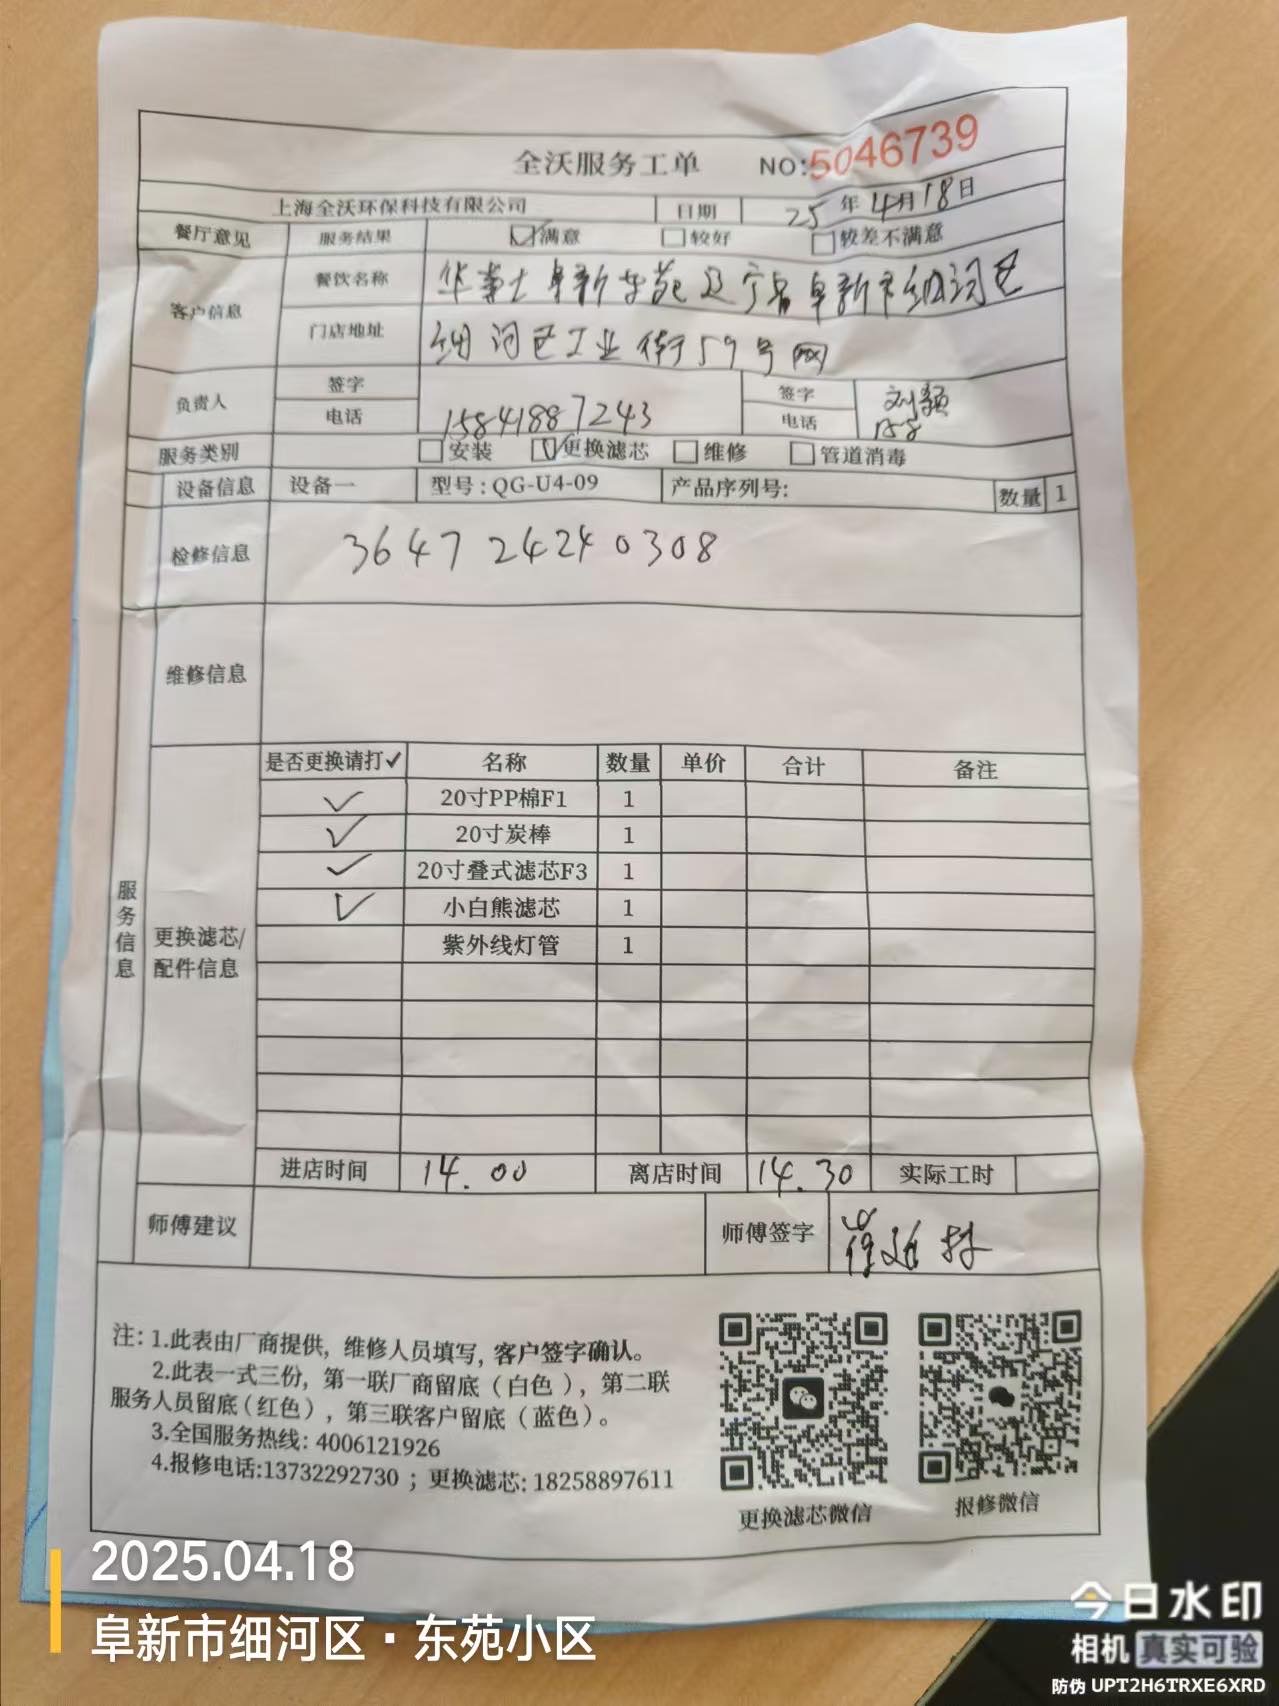 全沃服务工单 NO:5046739
上海全沃环保科技有限公司 日期 25年4月18日
餐厅意见 服务结果 ☑满意 □较好 □较差不满意
客户信息 餐饮名称 华莱士阜新东苑辽宁省阜新市细河区
门店地址 细河区工业街59号网
负责人 签字 签字 刘颖
电话 15841887243 电话 158
服务类别 □安装 ☑更换滤芯 □维修 □管道消毒
设备信息 设备一 型号:QG-U4-09 产品序列号: 数量 1
检修信息 364724240308
维修信息
服务信息
更换滤芯/
配件信息
是否更换请打✓ 名称 数量 单价 合计 备注
✓ 20寸PP棉F1 1
✓ 20寸炭棒 1
✓ 20寸叠式滤芯F3 1
✓ 小白熊滤芯 1
紫外线灯管 1
进店时间 14.00 离店时间 14.30 实际工时
师傅建议 师傅签字
注: 1.此表由厂商提供，维修人员填写，客户签字确认。
2.此表一式三份，第一联厂商留底（白色），第二联
服务人员留底（红色），第三联客户留底（蓝色）。
3.全国服务热线: 4006121926
4.报修电话:13732292730 ；更换滤芯: 18258897611
更换滤芯微信 报修微信
2025.04.18
阜新市细河区·东苑小区
今日水印
相机 真实可验
防伪 UPT2H6TRXE6XRD